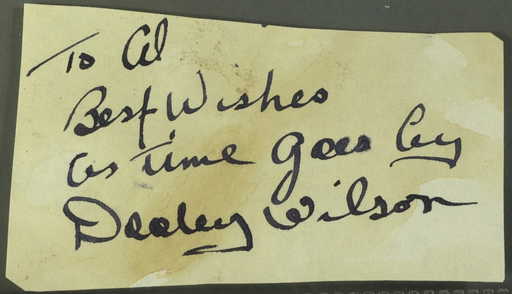 To Al
Best Wishes
as time goes by
Dooley Wilson